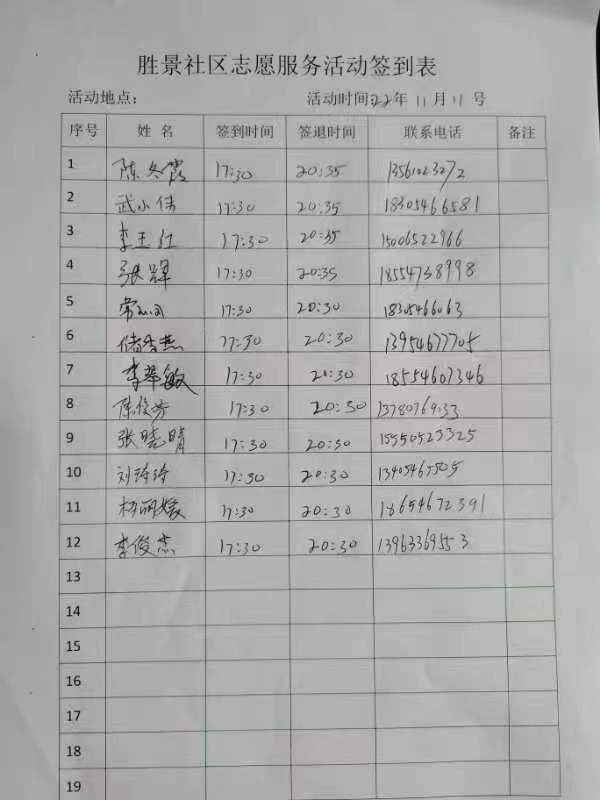 胜景社区志愿服务活动签到表
活动地点： 活动时间22年 11月 11号
序号 姓 名 签到时间 签退时间 联系电话 备注
1 陈冬霞 17:30 20:35
2 武小伟 17:30 20:35 18305466581
3 李玉红 17:30 20:35 15006522966
4 张辉 17:30 20:35 18554738998
5 17:30 20:30 18305466063
6 储香燕 17:30 20:30 13954677705
7 李翠敏 17:30 20:30 18554607346
8 陈俊芳 17:30 20:30
9 张晓晴 17:30 20:30 15550523325
10 刘玲玲 17:30 20:30
11 杨丽媛 17:30 20:30 18654672391
12 李俊杰 17:30 20:30 13963369553
13
14
15
16
17
18
19